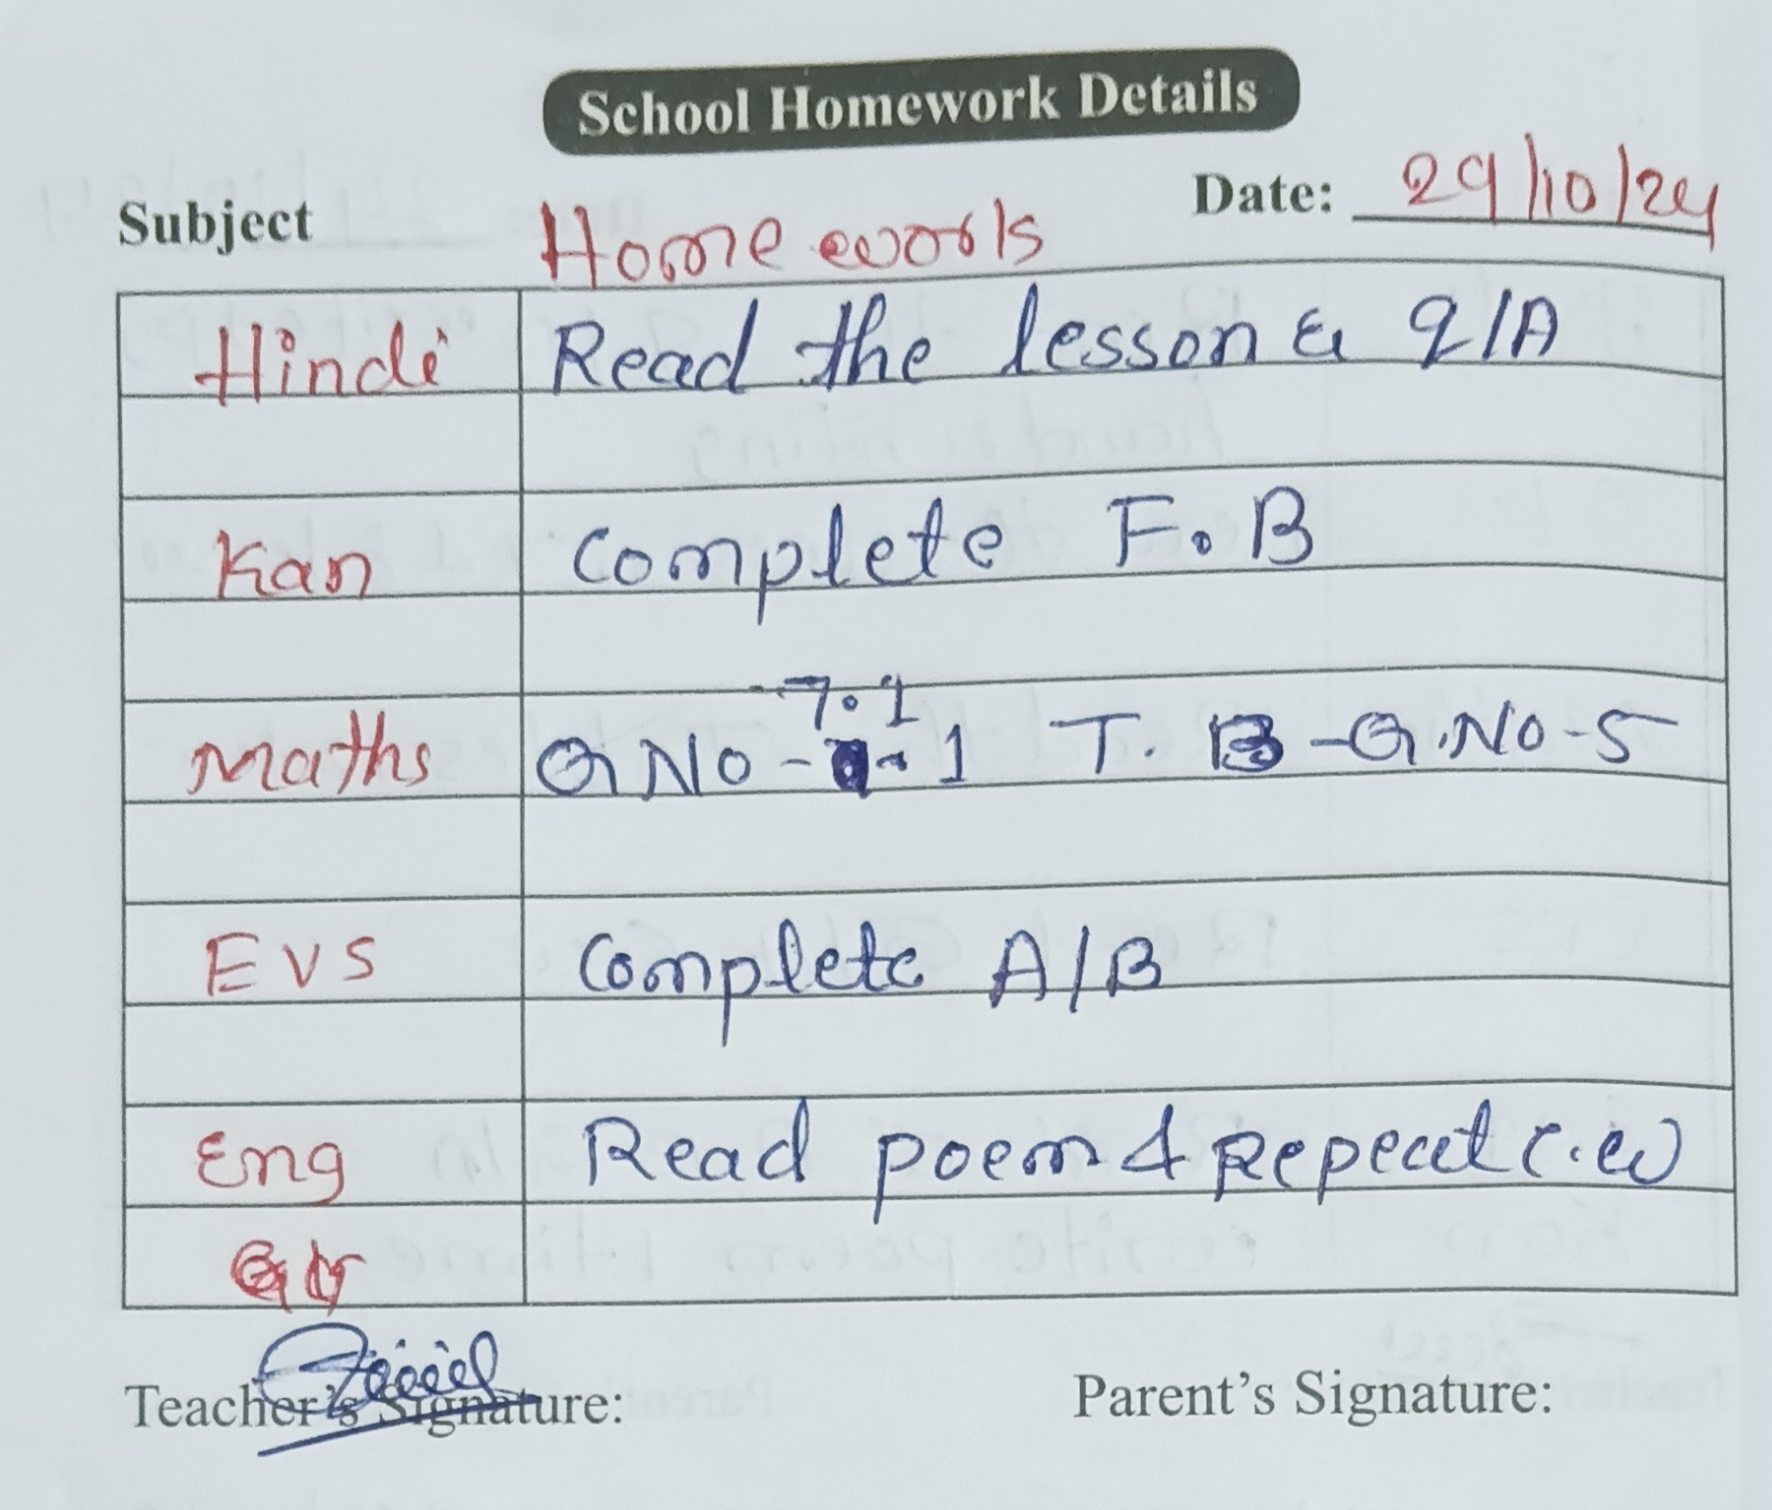 School Homework Details
Subject Home work Date: 29/10/24
Hindi Read the lesson & Q/A
Kan Complete F.B
7.1
Maths Q No - 1 T. B - Q.No-5
EVS Complete A/B
Eng Read poem & Repeat c.w
Teacher's Signature: Parent's Signature: